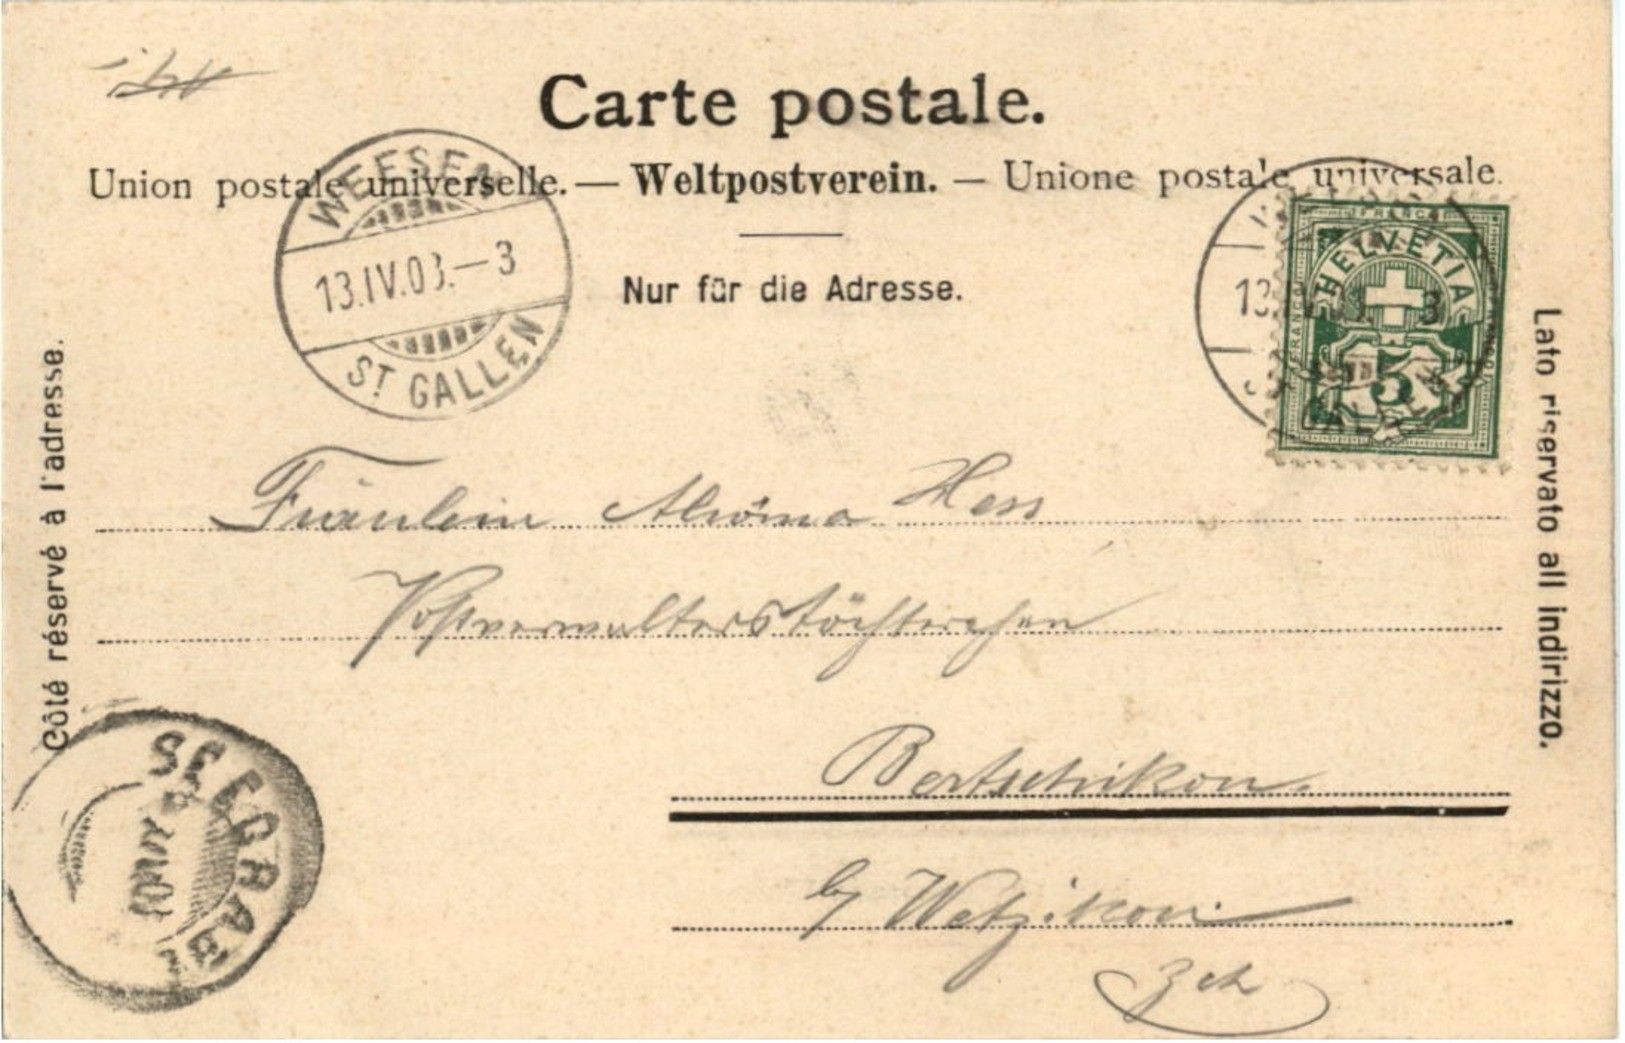 Carte postale.
Union postale universelle. — Weltpostverein. — Unione postale universale.
Nur für die Adresse.
WEESEN
13.IV.03.—3
ST GALLEN
FRANCO
HELVETIA
FRANCO
5
13.IV.03. 3
GALLEN
Côté réservé à l'adresse.
Lato riservato all indirizzo.
Fräulein Hess
Postverwalterstöchterchen
Bertschikon.
by Wetzikon.
Zch
SEEGRÄB